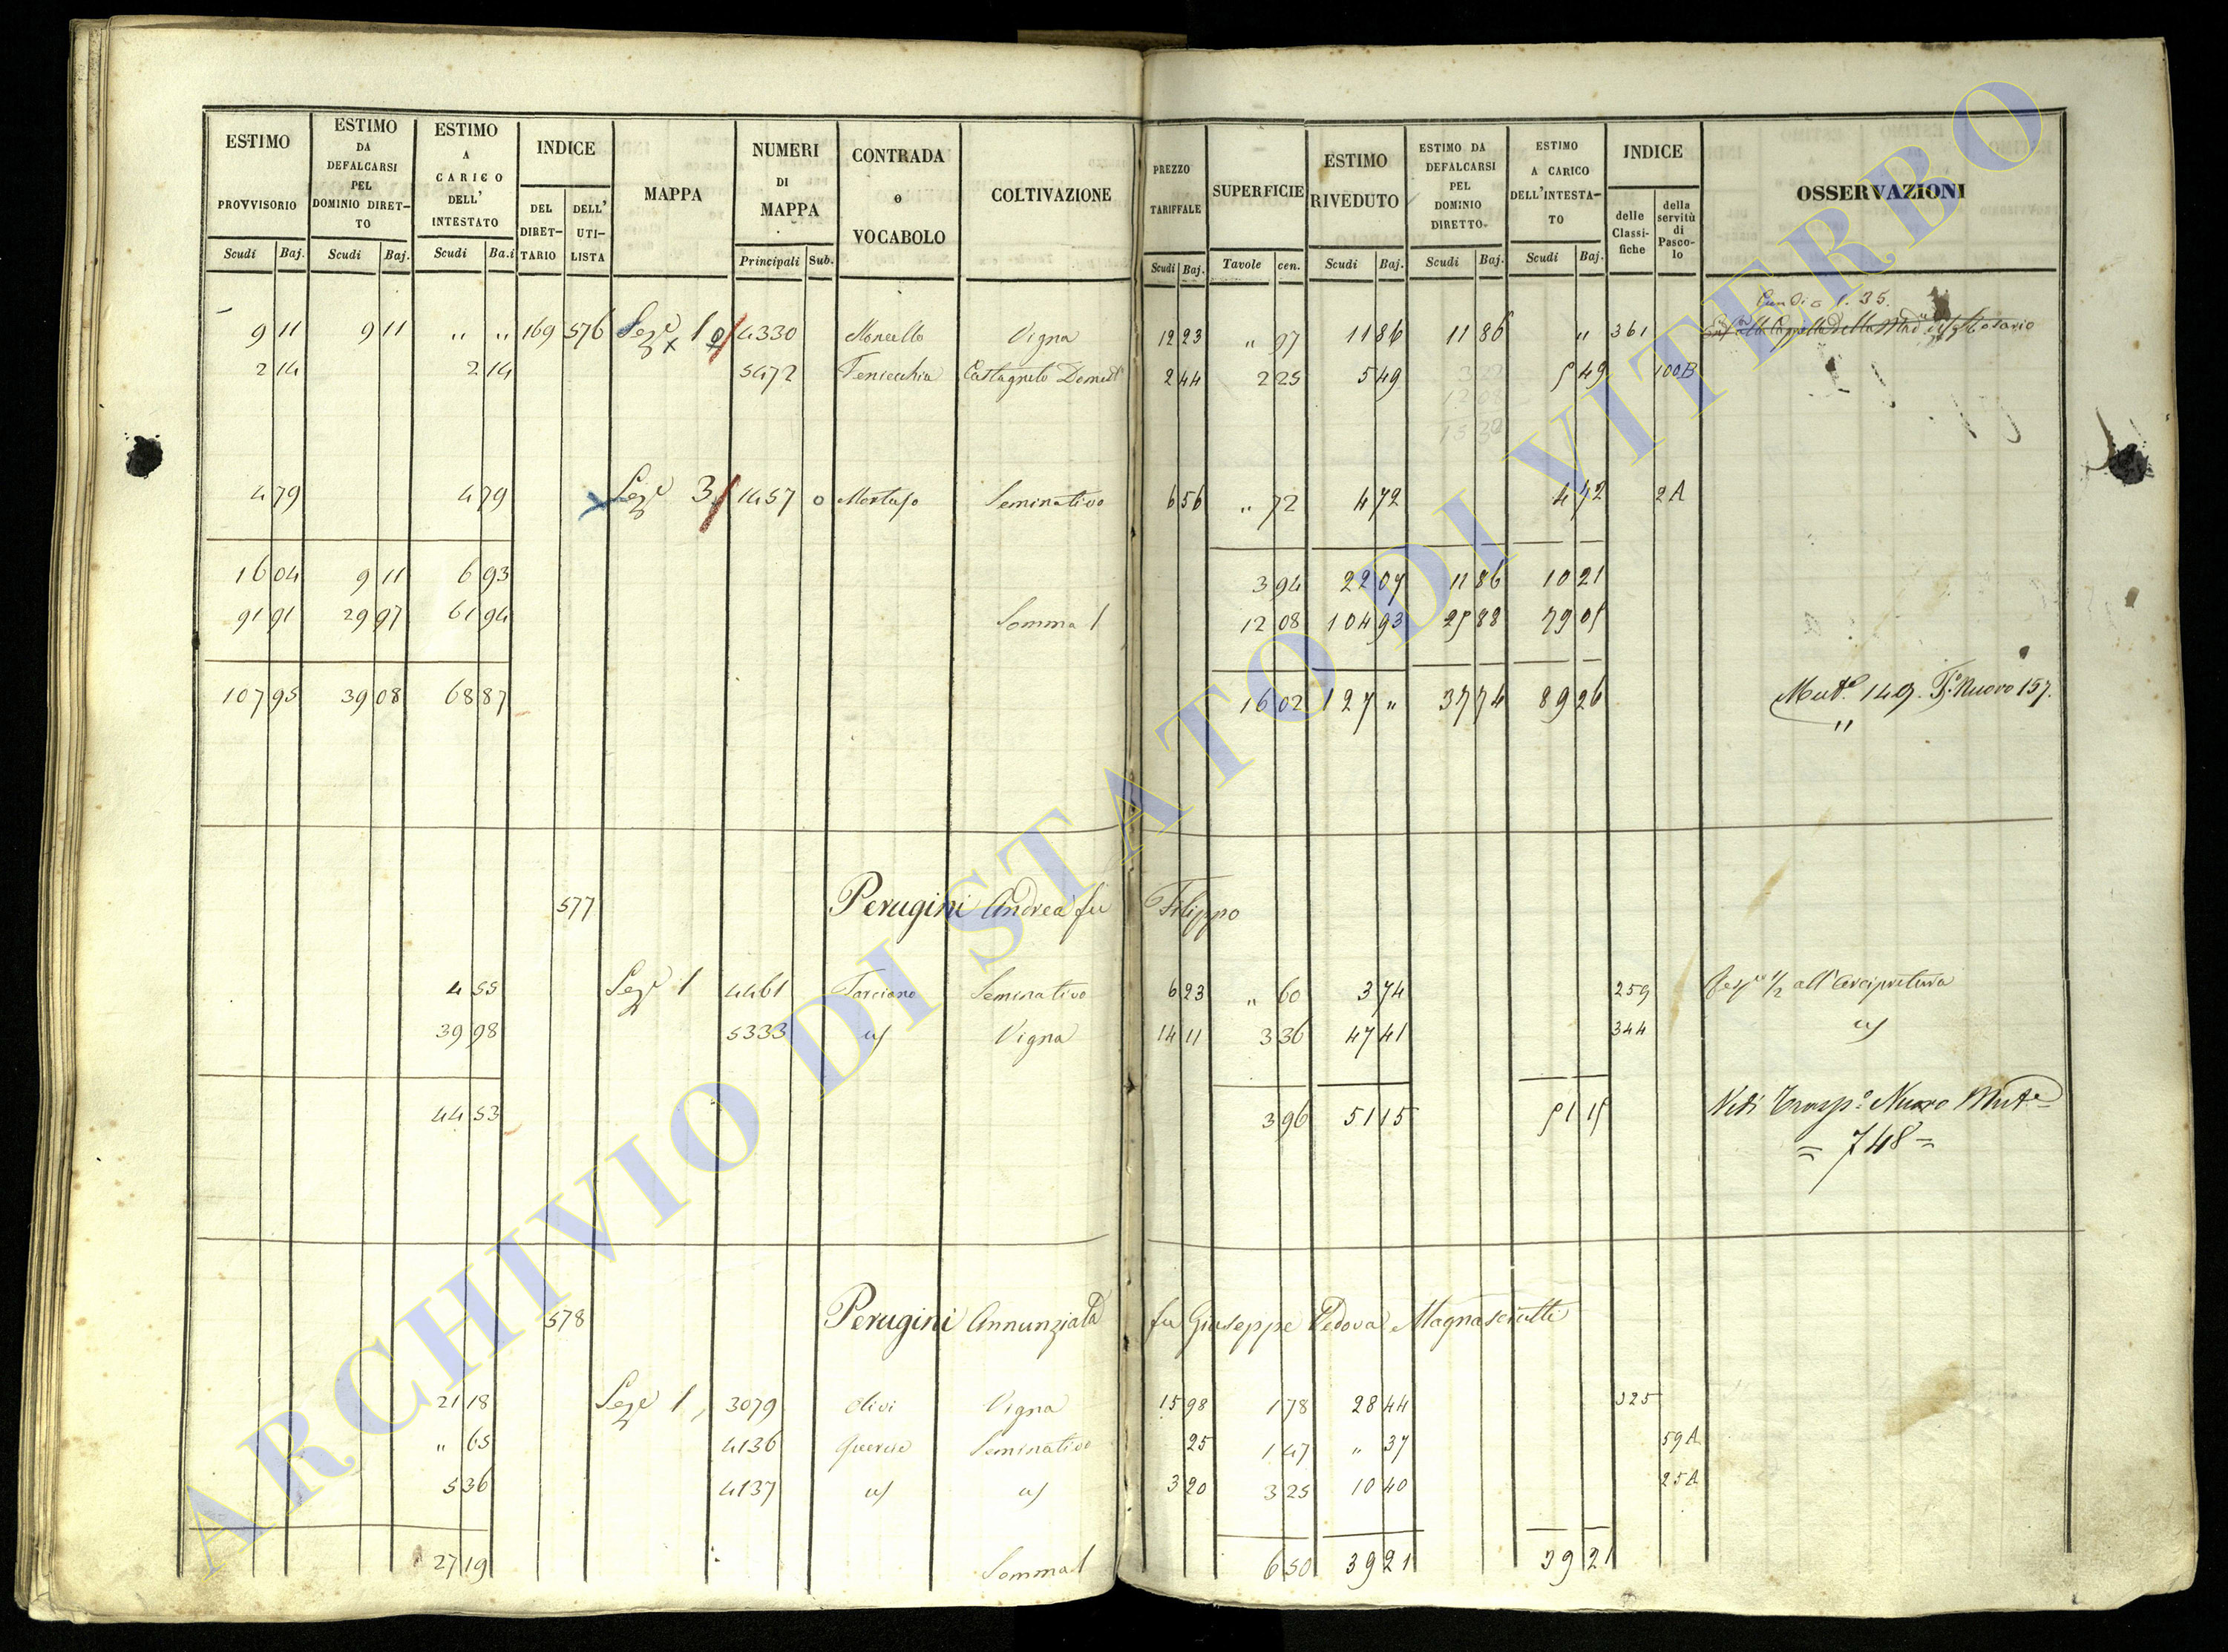 ESTIMO PROVVISORIO Scudi Baj.
ESTIMO DA DEFALCARSI PEL DOMINIO DIRET- TO Scudi Baj.
ESTIMO A CARICO DELL' INTESTATO Scudi Ba.i
INDICE DEL DIRET- TARIO DELL' UTI- LISTA
MAPPA
NUMERI DI MAPPA Principali Sub.
CONTRADA o VOCABOLO
COLTIVAZIONE
PREZZO TARIFFALE Scudi Baj.
SUPERFICIE Tavole cen.
ESTIMO RIVEDUTO Scudi Baj.
ESTIMO DA DEFALCARSI PEL DOMINIO DIRETTO Scudi Baj.
ESTIMO A CARICO DELL'INTESTA- TO Scudi Baj.
INDICE delle Classi- fiche della servitù di Pasco- lo
OSSERVAZIONI
9 11 9 11 " " 169 576 Seze 1 4330 Moncello Vigna 12 23 " 97 11 86 11 86 " 361 alla Cappella della Rosario
2 14 2 14 5472 Castagneto Domest 2 44 2 25 5 49 5 49 100B
4 79 4 79 Seze 3 1457 o Seminativo 6 56 " 72 4 72 4 72 2A
16 04 9 11 6 93 3 94 22 07 11 86 10 21
91 91 29 97 61 94 Somma 1 12 08 104 93 25 88 79 05
107 95 39 08 68 87 16 02 127 " 37 74 89 26 149 Nuovo 157.
577 Perugini Andrea fu Filippo
4 55 Seze 1 4461 Tarciano Seminativo 6 23 " 60 3 74 259 1/2 all'Arcipretura
39 98 5333 Vigna 14 11 3 36 47 41 344
44 53 3 96 51 15 51 15 Vedi Trasp.o Nuovo
= 748 =
578 Perugini Annunziata fu Giuseppe Vedova Magnasciutti
21 18 Seze 1 3079 Olivi Vigna 15 98 1 78 28 44 325
" 65 4136 Quercie Seminativo 25 1 47 " 37 59A
5 36 4137 3 20 3 25 10 40 25A
27 19 Somma 1 6 50 39 21 39 21
ARCHIVIO DI STATO DI VITERBO